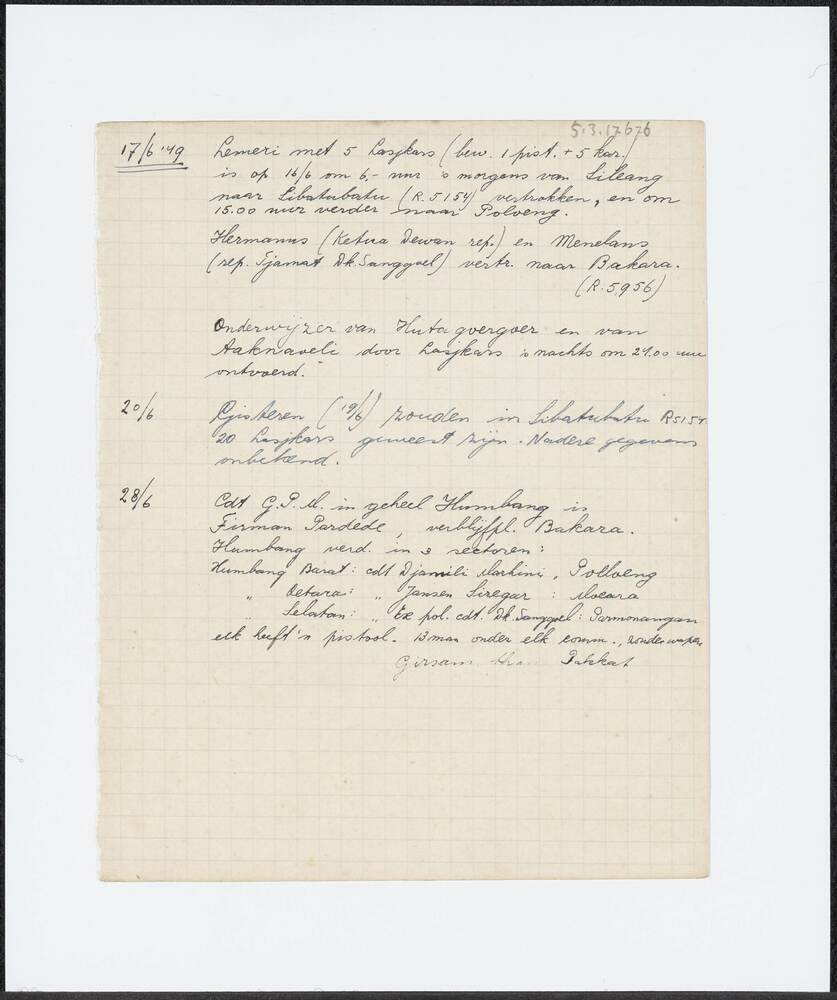 5.3.17676
17/6 '49 Lemeri met 5 Lasjkars (bew. 1 pist. + 5 kar.)
is op 16/6 om 6.- uur 's morgens van Sileang
naar Sibatubatu (R.5154) vertrokken, en om
15.00 uur verder naar Poloeng.
Hermanus (Ketua Dewan rep.) en Menelaus
(rep. Tjamat Dk. Sanggoel) vertr. naar Bakara.
(R.5956)
Onderwijzer van Huta goergoer en van
door Lasjkars 's nachts om uur
ontvoerd.
20/6 Gisteren (19/6) zouden in Sibatubatu R5154
20 Lasjkars geweest zijn. Nadere gegevens
onbekend.
28/6 Cdt G.P.M. in geheel Humbang is
Firman Pardede, verblijfpl. Bakara.
Humbang verd. in 3 sectoren:
Humbang Barat: cdt Djamili, Polloeng
" Oetara: " Jansen Siregar: Moeara
" Selatan: " Ex pol. cdt. Dk. Sanggoel: Parmonangan
elk heeft 'n pistool. 13 man onder elk comm., zonder wapens
Girsam Pakkat